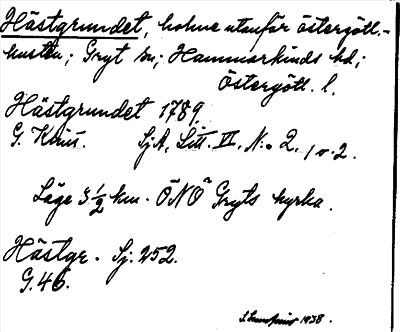 Hästgrundet, holme utanför östergötl.-
kusten; Gryt sn; Hammarkinds hd;
Östergötl. l.
Hästgrundet 1789.
G. Klint. SjA, Litt. VI, N:o 2. 1 o. 2.
Läge 3 1/2 km. ÖNÖ Gryts kyrka.
Hästgr. Sj. 252.
G. 46.
1938.